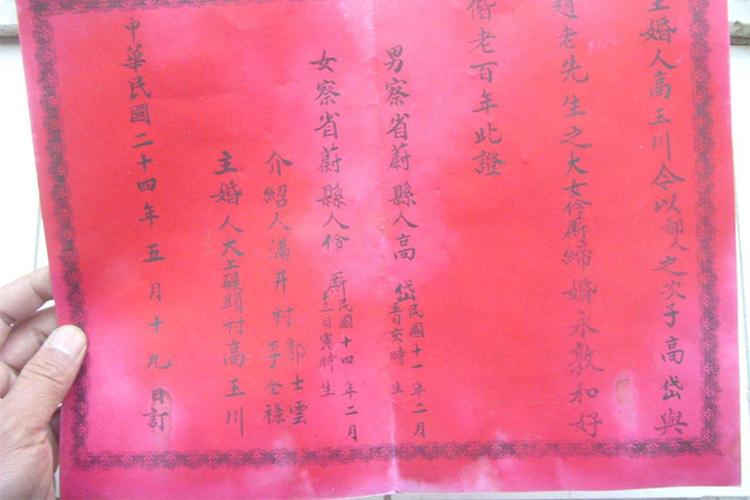 主婚人高玉川今以鄙人之次子高岱與
趙老先生之大女伶俐締婚永敦和好
偕老百年此證
男察省蔚縣人高岱民國十一年二月
亥時生
女察省蔚縣人伶
民國十四年二月
日寅時生
介紹人滿井村郭士雲
李全祿
主婚人大上碾頭村高玉川
中華民國二十四年五月十九日訂